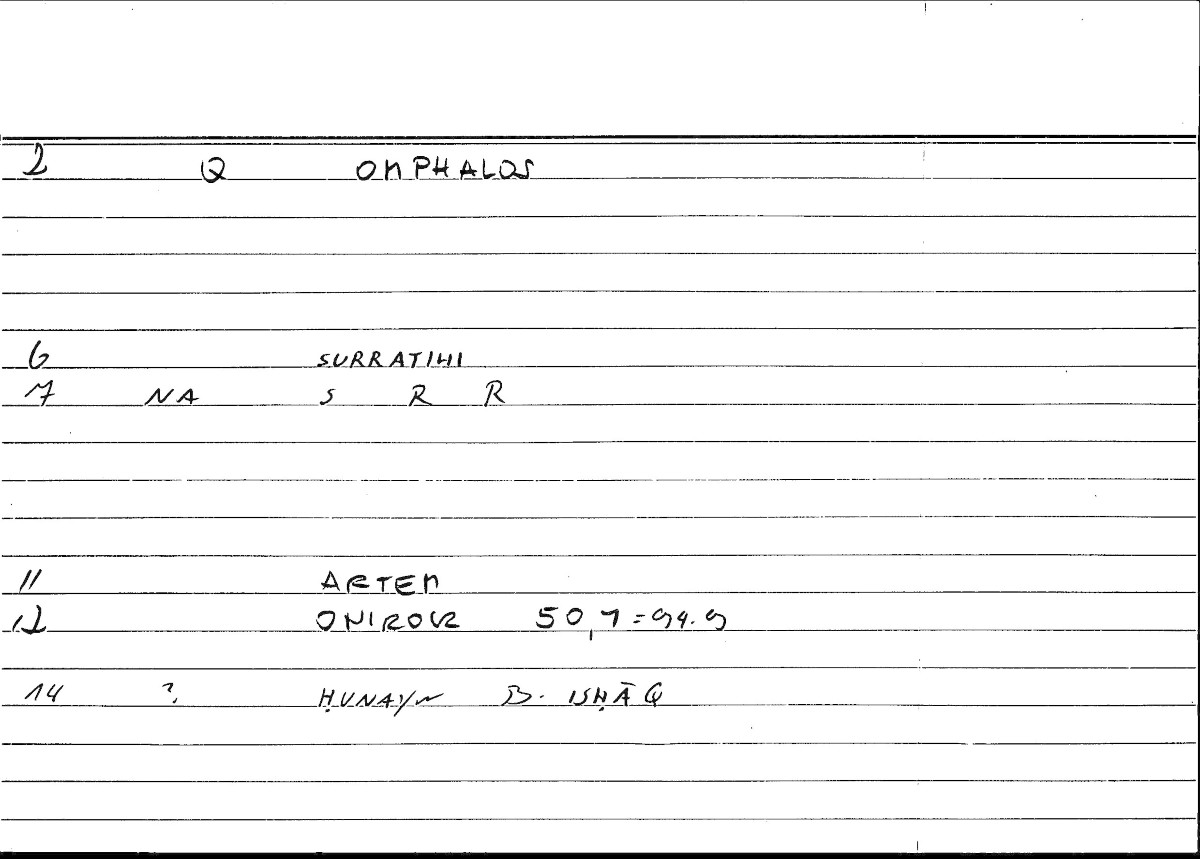 2 Q OMPHALOS
6 SURRATIHI
7 NA S R R
11 ARTEM
12 ONIROCR 50,7=94.9
14 ? ḤUNAYN B. ISḤĀQ